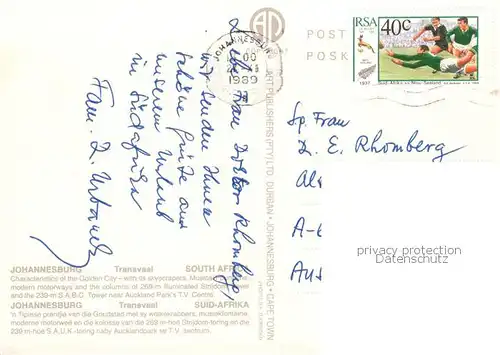 Liebe Frau Doktor Rhomberg,
wir senden Ihnen
schöne Grüße aus
unserem Urlaub
in Südafrika
Fam. D. Urbanek
JOHANNESBURG Transvaal SOUTH AFRI
Characteristics of the Golden City – with its skyscrapers,
modern motorways and the columns of 269-m illuminated Strijdom Tower
and the 239-m S.A.B.C. Tower near Auckland Park's T.V. Centre.
JOHANNESBURG Transvaal SUID-AFRIKA
'n Tipiese prentjie van die Goudstad met sy wolkekrabbers,
moderne motorweë en die kolosse van die 269-m hoë Strijdom-toring en die
239-m hoë S.A.U.K.-toring naby Aucklandpark se T.V. sentrum.
ART PUBLISHERS (PTY) LTD DURBAN • JOHANNESBURG • CAPE TOWN
JOHANNESBURG
1989
POST
POSK
RSA 40c
1937
Fr. Frau
D. E. Rhomberg
A-6
Aus
privacy protection
oldthing.com